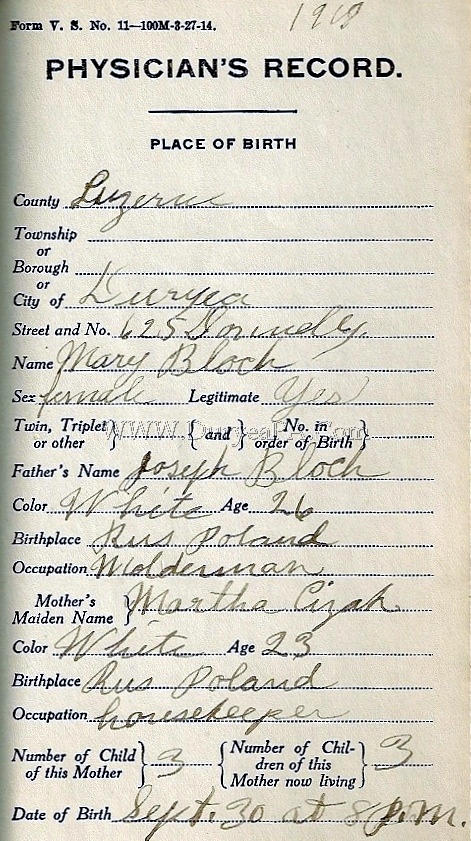 Form V. S. No. 11—100M-3-27-14.
PHYSICIAN'S RECORD.
PLACE OF BIRTH
County Luzerne
Township
or
Borough
or
City of Duryea
Street and No. 625 Donnelly
Name Mary Bloch
Sex female Legitimate Yes
Twin, Triplet or other } { and } No. in order of Birth }
WWW.DuryeaPA.Com
Father's Name Joseph Bloch
Color White Age 26
Birthplace Rus Poland
Occupation
Mother's Maiden Name } Martha Cizak
Color White Age 23
Birthplace Rus Poland
Occupation housekeeper
Number of Child of this Mother } 3 { Number of Children of this Mother now living } 3
Date of Birth Sept. 30 at 8 P.M.